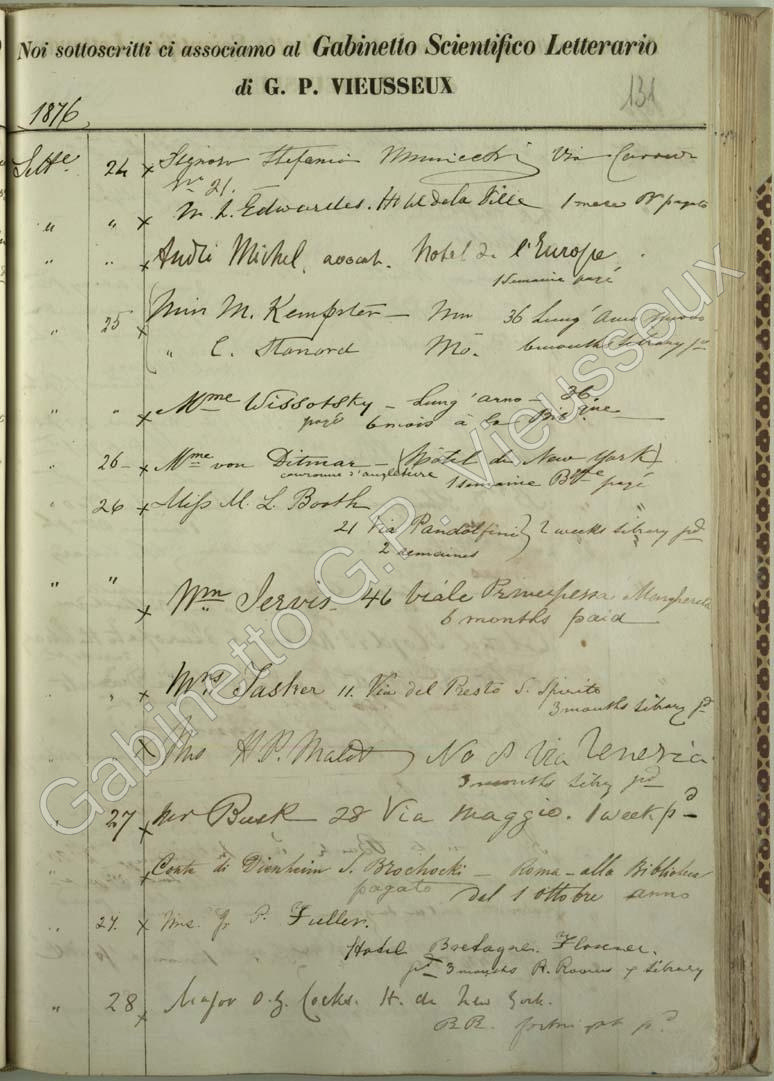 Noi sottoscritti ci associamo al Gabinetto Scientifico Letterario
di G. P. VIEUSSEUX
131
1876
Sett.e 24 x Stefania Via
No 21.
" " x M. L. Edwardes. Hotel de la Ville 1 mese pagato
" " x André Michel, avocat. Hotel de l'Europe
1 Semaine payé
" 25 x Miss M. Kempster — 36 Lung'Arno
" C. Stanard 6 months Library pd
" " x Mme Wissotsky — Lung'arno — 36.
payé 6 mois à la
" 26 — x Mme von Ditmar — (Hôtel de New York)
couronne d'angleterre 1 semaine payé
26 x Miss M. L. Booth
21 Via Pandolfini } 2 weeks Library pd
2 semaines
" " x Wm Jervis. 46 Viale Principessa Margherita
6 months paid
" x Mrs Tasker 11. Via del Presto S. Spirito
3 months Library pd
x H. P. No 8 Via Venezia
3 months pd
" 27 x Mr Busk 28 Via Maggio. 1 week pd
x Conte di Dienheim S. Brochocki — Roma — alla
pagato dal 1 ottobre anno
" 27. x P. Fuller.
Hotel Bretagne.
pd 3 months R. Rooms & Library
" 28 x Major Cocks. H. de New York.
R.R. fortnight pd
Gabinetto G.P. Vieusseux